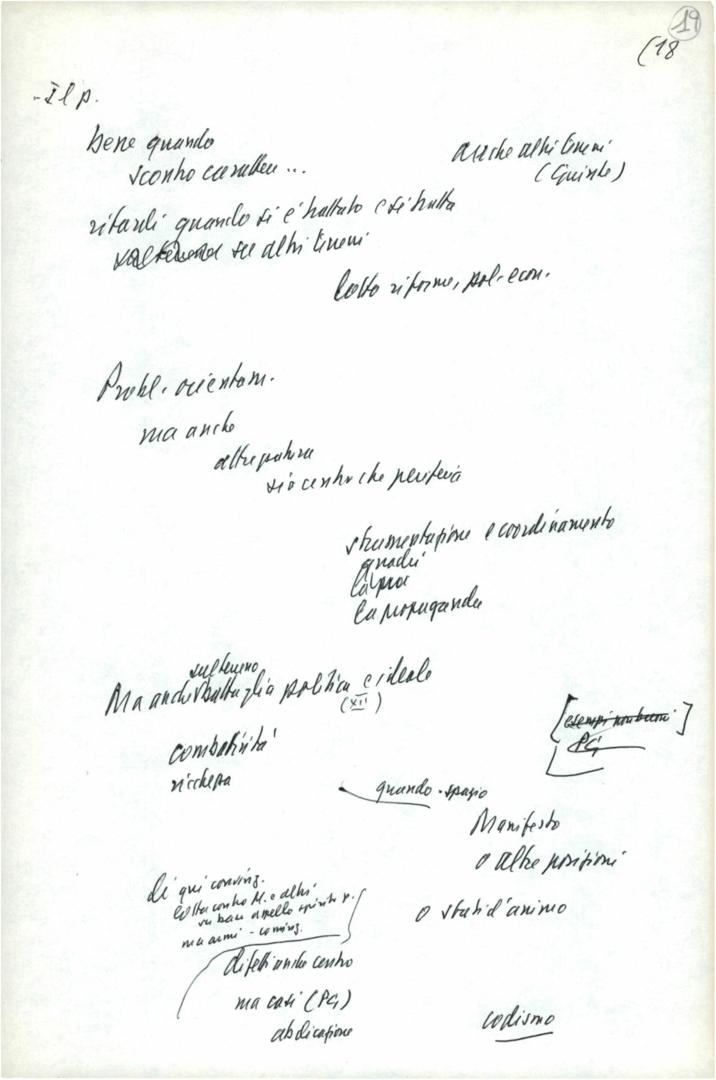 19
(18
- Il p.
bene quando
scontro cavalleu...
anche altri terreni
(Giunte)
ritardi quando si è trattato e si tratta
su altri terreni
lotta riforme, pol. econ.
Probl. orientam.
ma anche
altre natura
sia centro che periferia
strumentazione e coordinamento
quadri
la propaganda
sul terreno
Ma anche battaglia politica e ideale
(XII)
combatività
ricchezza
[esempi non buoni]
PG
quando - spazio
Manifesto
o altre posizioni
o stati d'animo
di qui convinz.
lotta contro M. e altri
su base appello spirito p.
ma armi - convinz.
difetti anche centro
ma casi (PG)
abdicazione
codismo